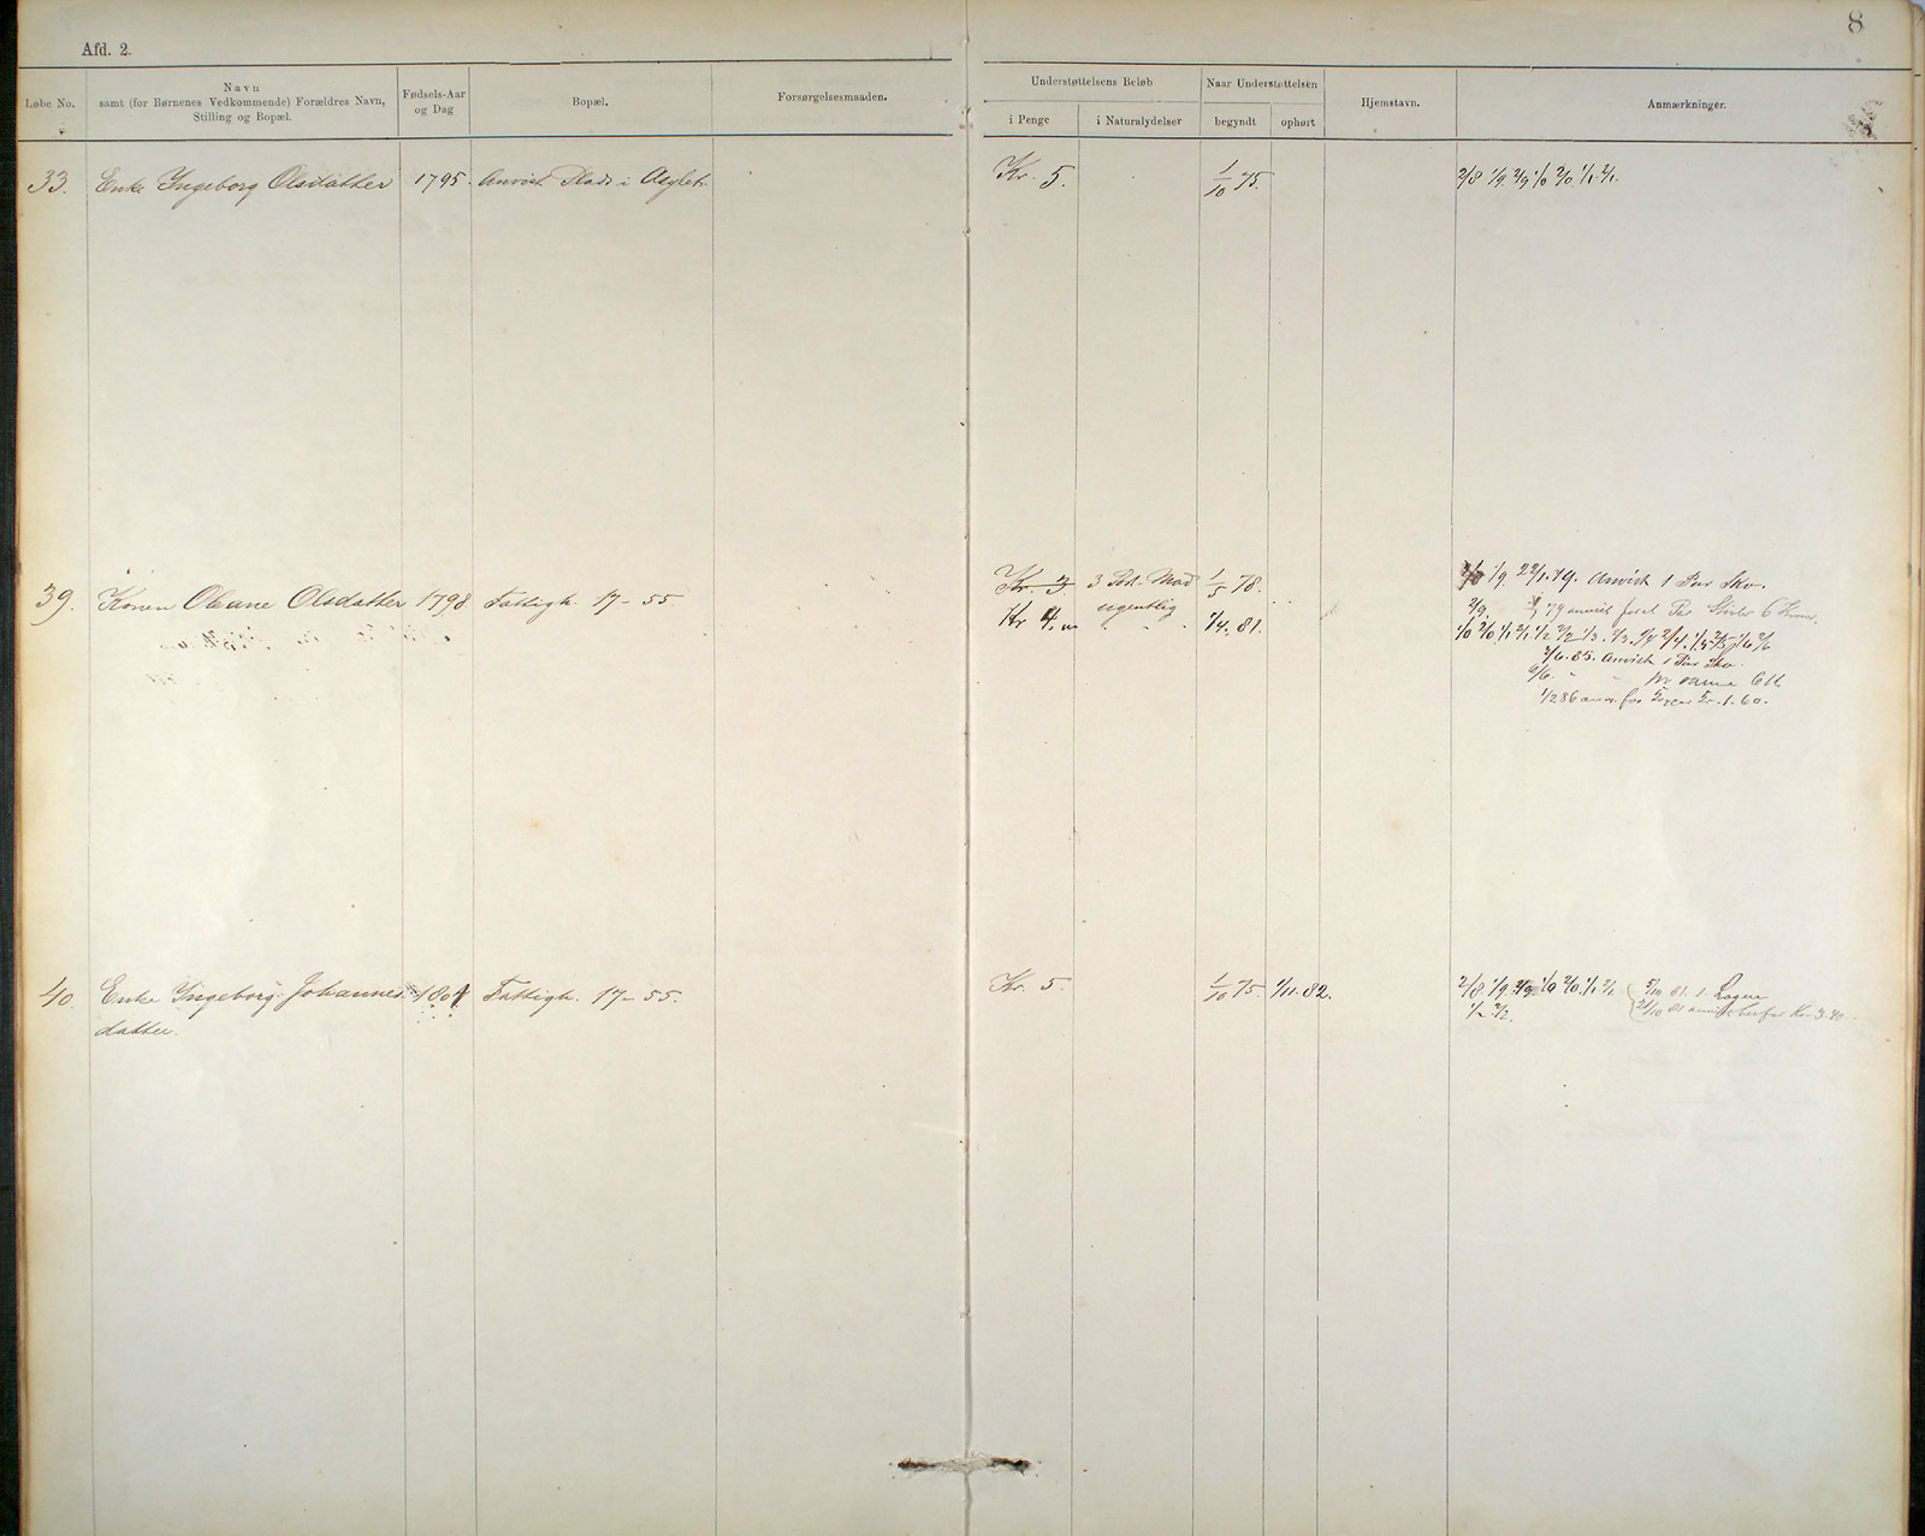 8
Afd. 2.
Løbe No.
Navn
samt (for Børnenes Vedkommende) Forældres Navn,
Stilling og Bopæl.
Fødsels-Aar
og Dag
Bopæl.
Forsørgelsesmaaden.
Understøttelsens Beløb
i Penge
i Naturalydelser
Naar Understøttelsen
begyndt
ophørt
Hjemstavn.
Anmærkninger.
33. Enke Ingeborg Olsdatter 1795. Anvist Plads i Asylet. Kr. 5. 1/10 75. 2/8 1/9. 2/9 1/0 2/0 1/1. 2/1.
39. Konen Oleane Olsdatter 1798 Fattigh. 17-55. Kr. 3 3 Pot. Mad 1/5 78. 1/9. 22/1.79. Anvist 1 Par Sko.
ugentlig
2/9. 79 anvist Par Støvler 6 Kroner.
Kr 4. 1/4. 81. 1/0 2/0 1/1 2/1 1/2 2/2 1/3. 2/3. 1/4 2/4. 1/5 2/5 1/6 2/6
2/6. 85. Anvist 1 Par Sko.
6/6. " " samme
1/2 86 anv. for Kr. 1. 60.
40. Enke Ingeborg Johannes- 1801 Fattigh. 17-55. Kr. 5. 1/10 75. 1/11. 82. 2/8 1/9. 2/9. 1/0 2/0. 1/1 2/1 5/10 81. 1. Lagen
datter. 1/2 2/2. 21/10 81 anvist herfor Kr. 3.40.